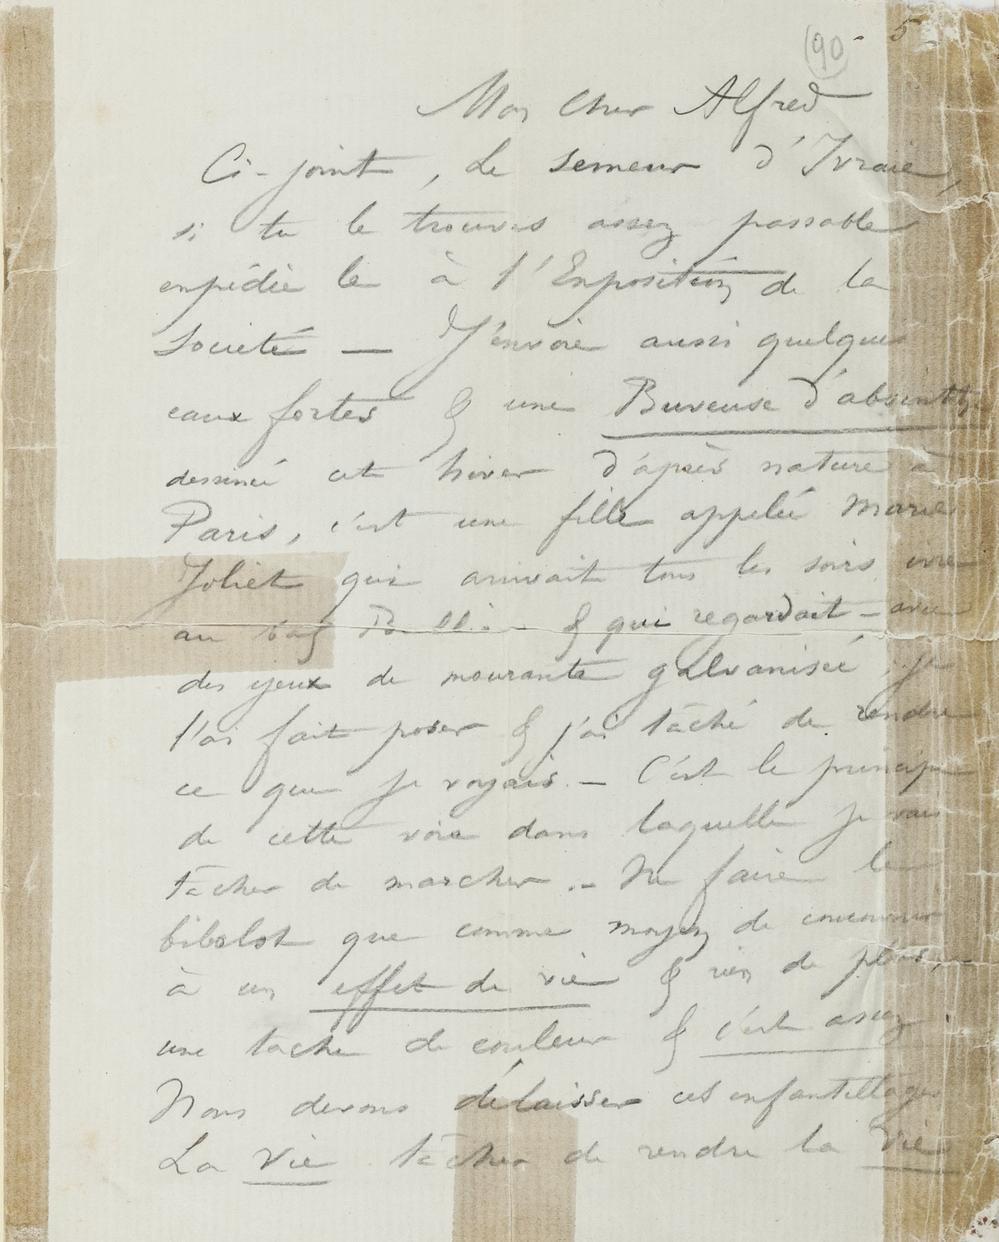 (90) - 5
Mon cher Alfred
Ci-joint, Le Semeur d'Ivraie,
si tu le trouves assez passable
expédie le à l'Exposition de la
Société — J'envoie aussi quelques
eaux fortes & une Buveuse d'absinthe
dessinée cet hiver d'après nature à
Paris, c'est une fille appelée Marie
Joliet qui arrivait tous les soirs ivre
au bal & qui regardait - avec
des yeux de mourante galvanisée, je
l'ai fait poser & j'ai tâché de rendre
ce que je voyais. — C'est le principe
de cette voie dans laquelle je vais
tâcher de marcher. — Ne faire le
bibelot que comme moyen de concourir
à un effet de vie & rien de plus, -
une tache de couleur & c'est assez
Nous devons délaisser ces enfantillages
La Vie tâcher de rendre la Vie